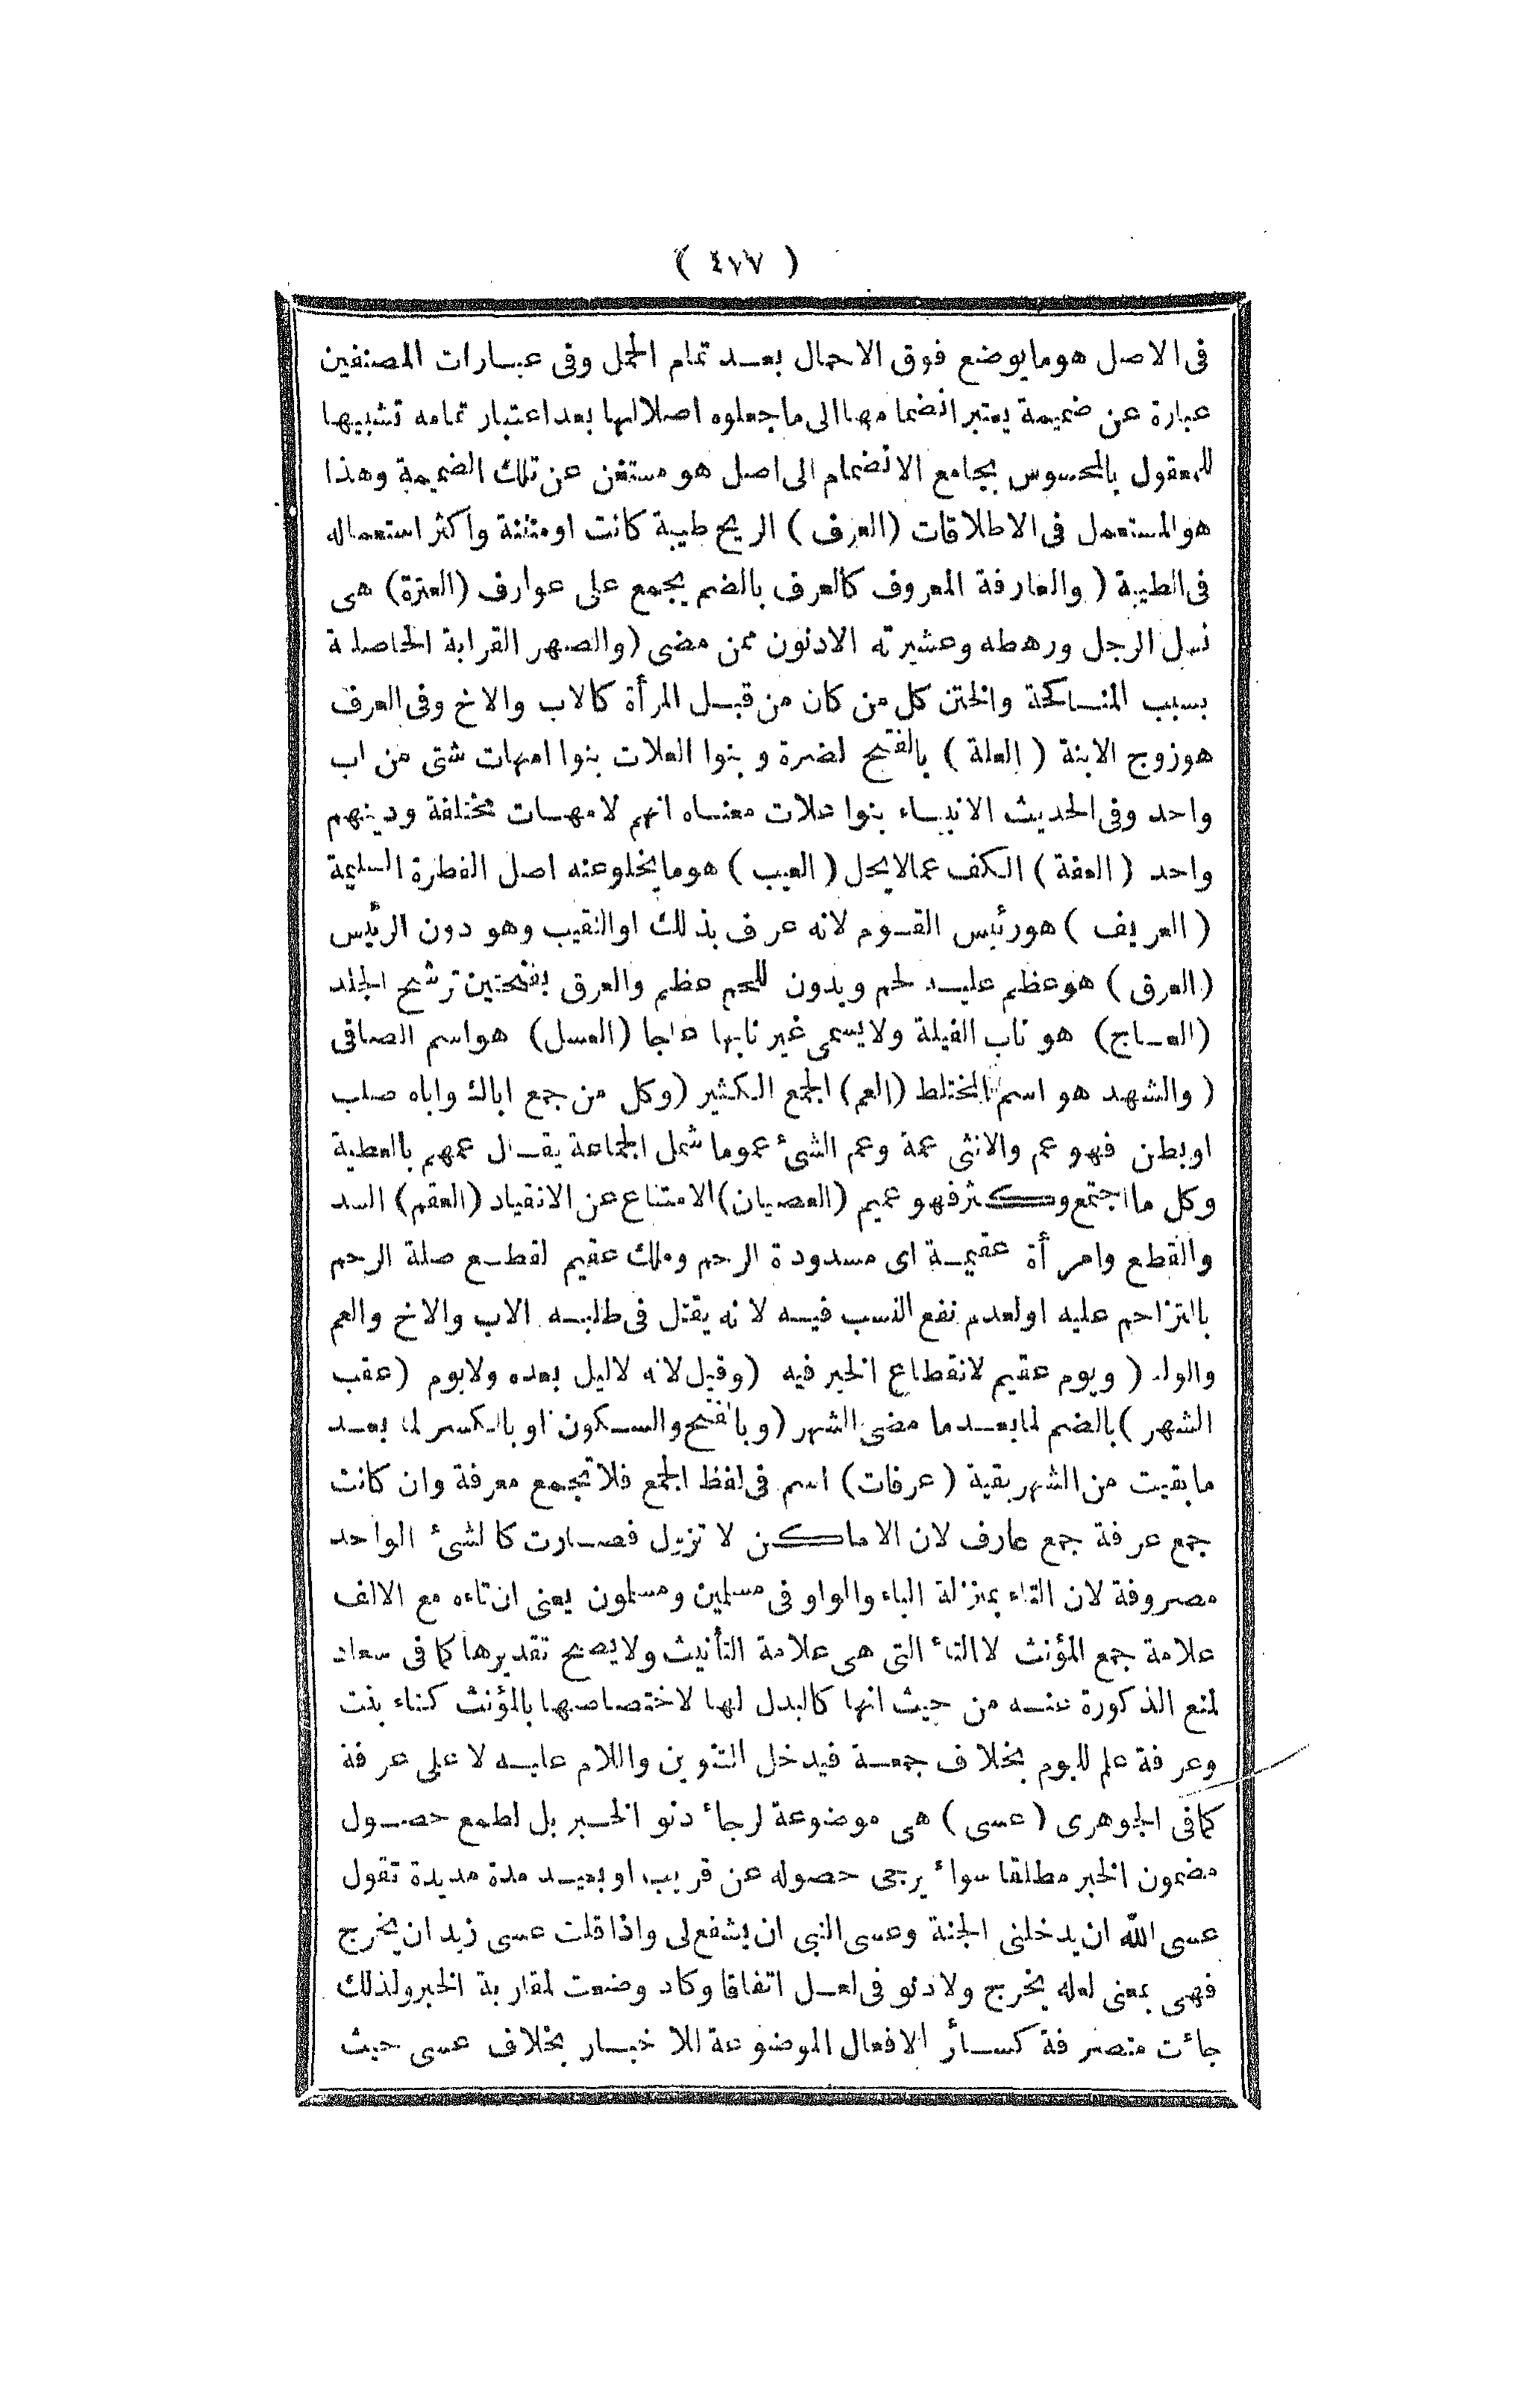 ( ٤٧٧ )
فى الاصل هو مايوضع فوق الاحمال بعد تمام الحمل وفى عبارات المصنفين
عبارة عن ضميمة يعتبر انضمامها الى ماجعلوه اصلا لها بعد اعتبار تمامه تشبيها
للمعقول بالمحسوس بجامع الانضمام الى اصل هو مستغن عن تلك الضميمة وهذا
هو المستعمل فى الاطلاقات (العرف) الريح طيبة كانت او منتنة واكثر استعماله
فى الطيبة ( والعارفة المعروف كالعرف بالضم يجمع على عوارف (العترة) هى
نسل الرجل ورهطه وعشيرته الادنون ممن مضى (والصهر القرابة الحاصلة
بسبب المناكحة والختن كل من كان من قبل المرأة كالاب والاخ وفى العرف
هو زوج الابنة ( العلة ) بالفتح لضرة وبنوا العلات بنوا امهات شتى من اب
واحد وفى الحديث الانبياء بنوا علات معناه انهم لامهات مختلفة ودينهم
واحد ( العفة ) الكف عمالايحل ( العيب ) هو مايخلو عنه اصل الفطرة السليمة
( العريف ) هو رئيس القوم لانه عرف بذلك او النقيب وهو دون الرئيس
(العرق) هو عظم عليه لحم وبدون للحم عظم والعرق بفتحتين ترشح الجلد
(العاج) هو ناب الفيلة ولايسمى غير نابها عاجا (العسل) هو اسم الصافى
( والشهد هو اسم المختلط (العم) الجمع الكثير (وكل من جمع اباك واباه صلب
اوبطن فهو عم والانثى عمة وعم الشئ عموما شمل الجماعة يقال عمهم بالعطية
وكل ما اجتمع وكثر فهو عميم (العصيان) الامتناع عن الانقياد (العقم) السد
والقطع وامرأة عقيمة اى مسدودة الرحم وملك عقيم لقطع صلة الرحم
بالتزاحم عليه اولعدم نفع النسب فيه لانه يقتل فى طلبه الاب والاخ والعم
والولد ( ويوم عقيم لانقطاع الخير فيه (وقيل لانه لاليل بعده ولايوم (عقب
الشهر ) بالضم لمابعد ما مضى الشهر (وبالفتح والسكون او بالكسر لما بعد
مابقيت من الشهر بقية ( عرفات) اسم فى لفظ الجمع فلاتجمع معرفة وان كانت
جمع عرفة جمع عارف لان الاماكن لا تزيل فصارت كالشئ الواحد
مصروفة لان التاء بمنزلة الياء والواو فى مسلمين ومسلمون يعنى ان تاءه مع الالف
علامة جمع المؤنث لا التاء التى هى علامة التأنيث ولايصح تقديرها كما فى سعاد
لمنع المذكورة عنه من حيث انها كالبدل لها لاختصاصها بالمؤنث كتاء بنت
وعرفة علم لليوم بخلاف جمعة فيدخل التنوين واللام عليه لا على عرفة
كمافى الجوهرى ( عسى ) هى موضوعة لرجاء دنو الخبر بل لطمع حصول
مضمون الخبر مطلقا سواء يرجى حصوله عن قريب او بعيد مدة مديدة تقول
عسى الله ان يدخلنى الجنة وعسى النبى ان يشفع لى واذا قلت عسى زيد ان يخرج
فهى بمعنى لعله يخرج ولادنو فى لعل اتفاقا وكاد وضعت لمقاربة الخبر ولذلك
جاءت متصرفة كسائر الافعال الموضوعة للاخبار بخلاف عسى حيث